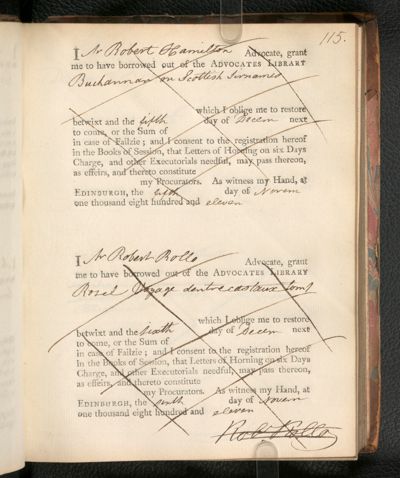 115.
I Mr Robert Hamilton Advocate, grant
me to have borrowed out of the ADVOCATES LIBRARY
Buchannan on Scottish Surnames
which I oblige me to restore
betwixt and the fifth day of Decem next
to come, or the Sum of
in case of Failzie; and I consent to the registration hereof
in the Books of Session, that Letters of Horning on six Days
Charge, and other Executorials needful, may pass thereon,
as effeirs, and thereto constitute
my Procurators. As witness my Hand, at
EDINBURGH, the fifth day of Novem
one thousand eight hundred and eleven
I Mr Robert Rollo Advocate, grant
me to have borrowed out of the ADVOCATES LIBRARY
Rossel Voyage dentrecasteaux tom
which I oblige me to restore
betwixt and the sixth day of Decem next
to come, or the Sum of
in case of Failzie; and I consent to the registration hereof
in the Books of Session, that Letters of Horning on six Days
Charge, and other Executorials needful, may pass thereon,
as effeirs, and thereto constitute
my Procurators. As witness my Hand, at
EDINBURGH, the sixth day of Novem
one thousand eight hundred and eleven
Robt Rollo